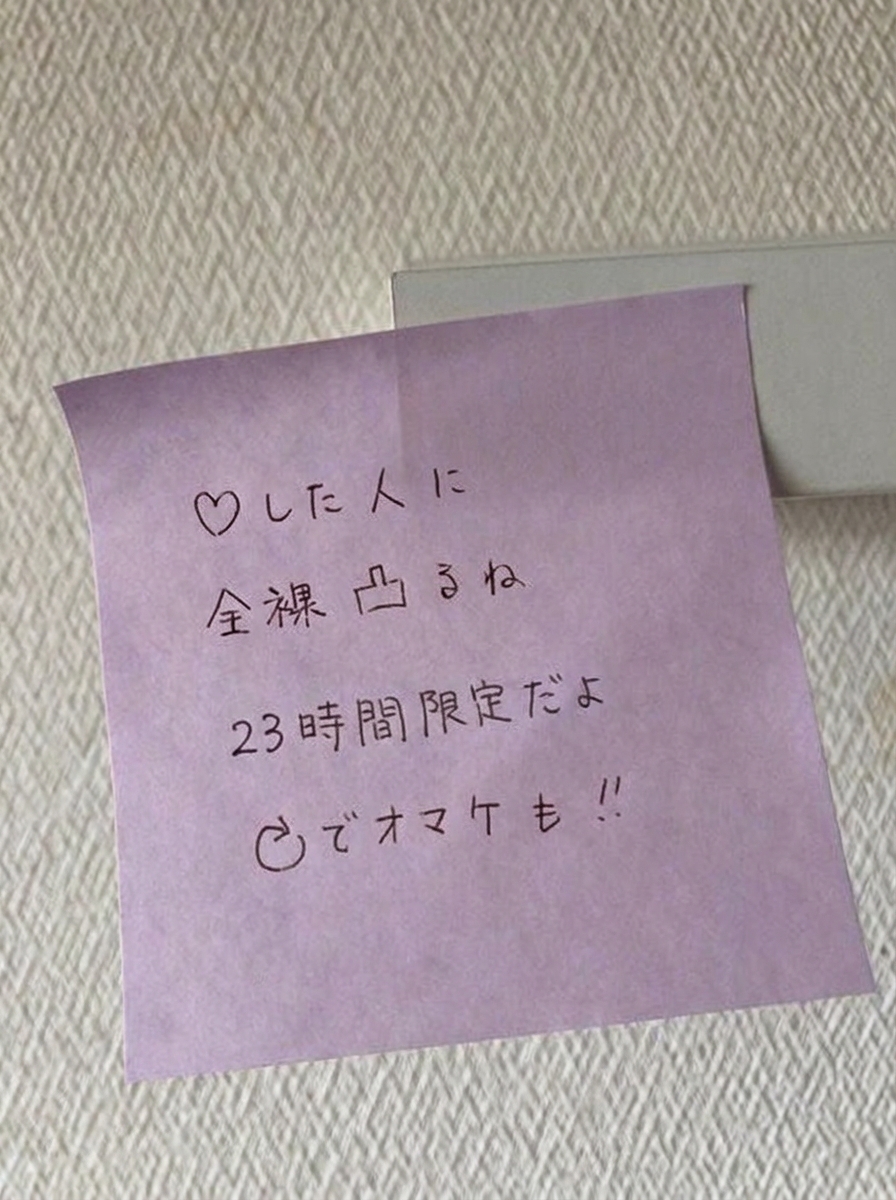 ♡した人に
全裸凸るね
23時間限定だよ
↻でオマケも!!